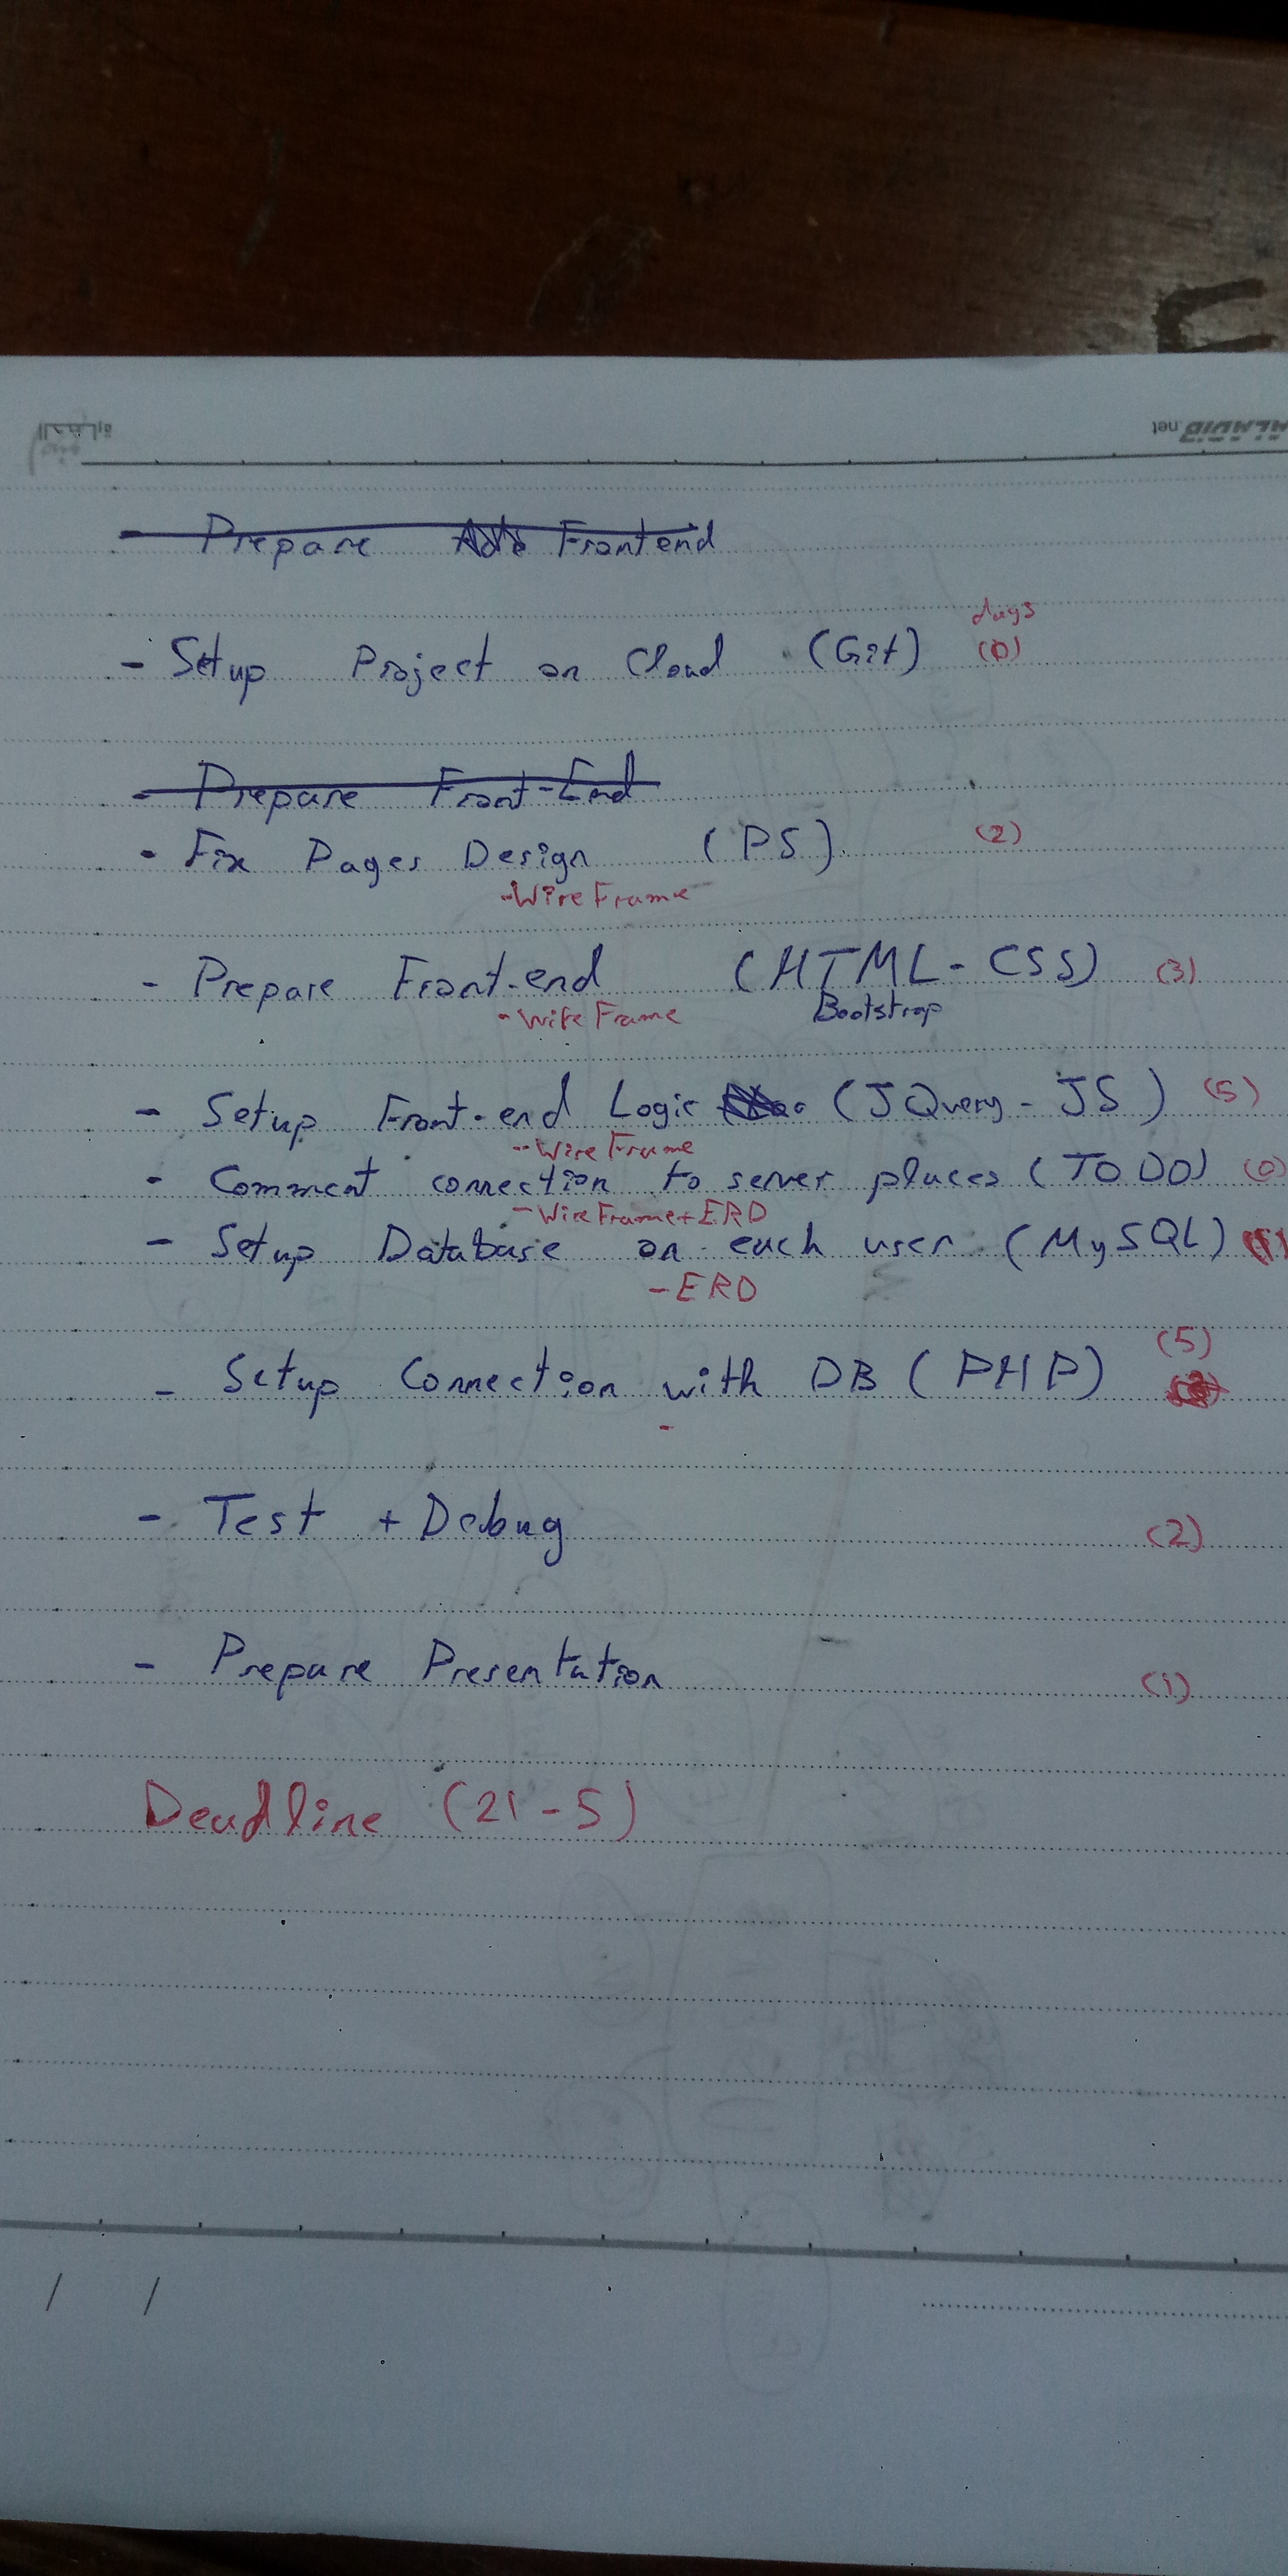 - Prepare Frontend
days
- Setup Project on Cloud (Git) (0)
- Prepare Front-End
- Fix Pages Design (PS) (2)
- WireFrame
- Prepare Front-end (HTML - CSS) (3)
- WireFrame Bootstrap
- Setup Front-end Logic (JQuery - JS) (5)
- WireFrame
- Comment connection to server places (TODO) (0)
- WireFrame + ERD
- Setup Database on each user (MySQL) (1)
- ERD
(5)
- Setup Connection with DB (PHP)
-
- Test + Debug (2)
- Prepare Presentation (1)
Deadline (21-5)
/ /